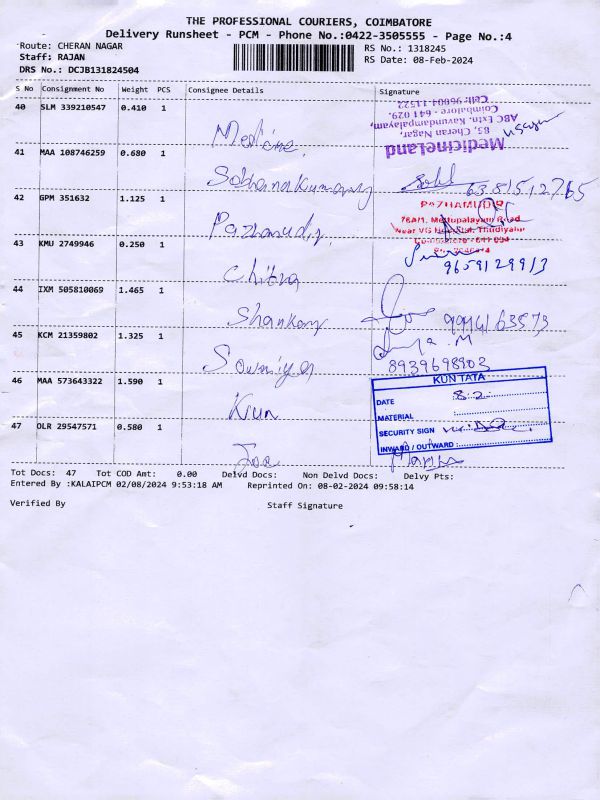 THE PROFESSIONAL COURIERS, COIMBATORE
Delivery Runsheet - PCM - Phone No.:0422-3505555 - Page No.:4
Route: CHERAN NAGAR
RS No.: 1318245
Staff: RAJAN
RS Date: 08-Feb-2024
DRS No.: DCJB131824504
S No Consignment No Weight PCS Consignee Details Signature
40 SLM 339210547 0.410 1
Medicine
MedicineLand
85, Cheran Nagar,
ABC Extn. Kavundampalayam,
Coimbatore - 641 029.
Cell: 96004 11522
41 MAA 108746259 0.680 1
Sobhanakumary 6381512765
42 GPM 351632 1.125 1
Pazhamudir
PAZHAMUDIR
76A/1, Mettupalayam Road
Near VG Hospital, Thudiyalur
Coimbatore - 641 034
43 KMU 2749946 0.250 1
Chitra 9659129913
44 IXM 505810069 1.465 1
Shankar 9994163573
45 KCM 21359802 1.325 1
Sowmiya 8939698903
46 MAA 573643322 1.590 1
Kun
KUN TATA
DATE 8.2
MATERIAL
SECURITY SIGN
INWARD / OUTWARD
47 OLR 29547571 0.580 1
Joe
Tot Docs: 47 Tot COD Amt: 0.00 Delvd Docs: Non Delvd Docs: Delvy Pts:
Entered By :KALAIPCM 02/08/2024 9:53:18 AM Reprinted On: 08-02-2024 09:58:14
Verified By Staff Signature